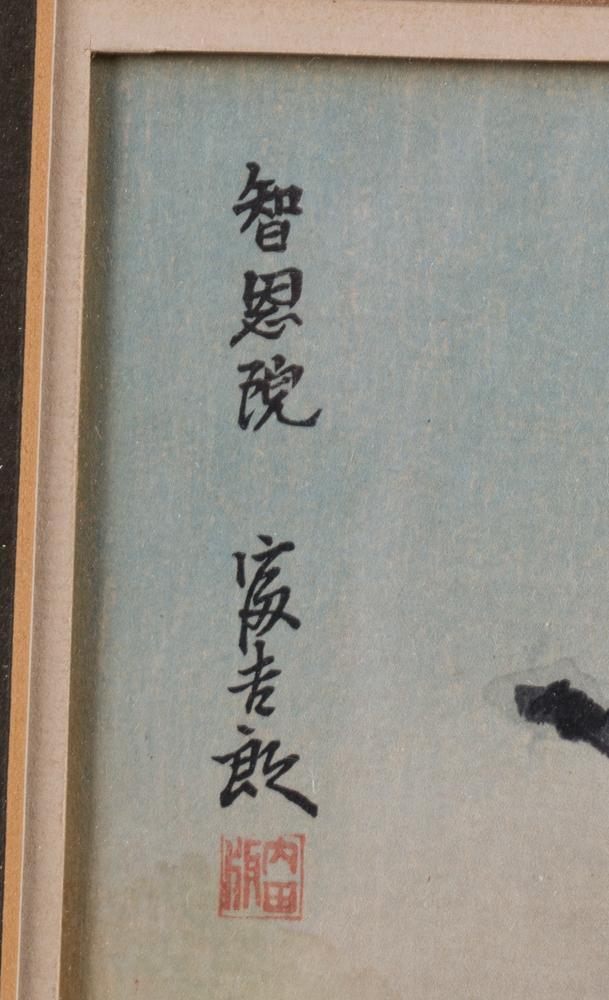 智恩院 富吉郎
内田
版